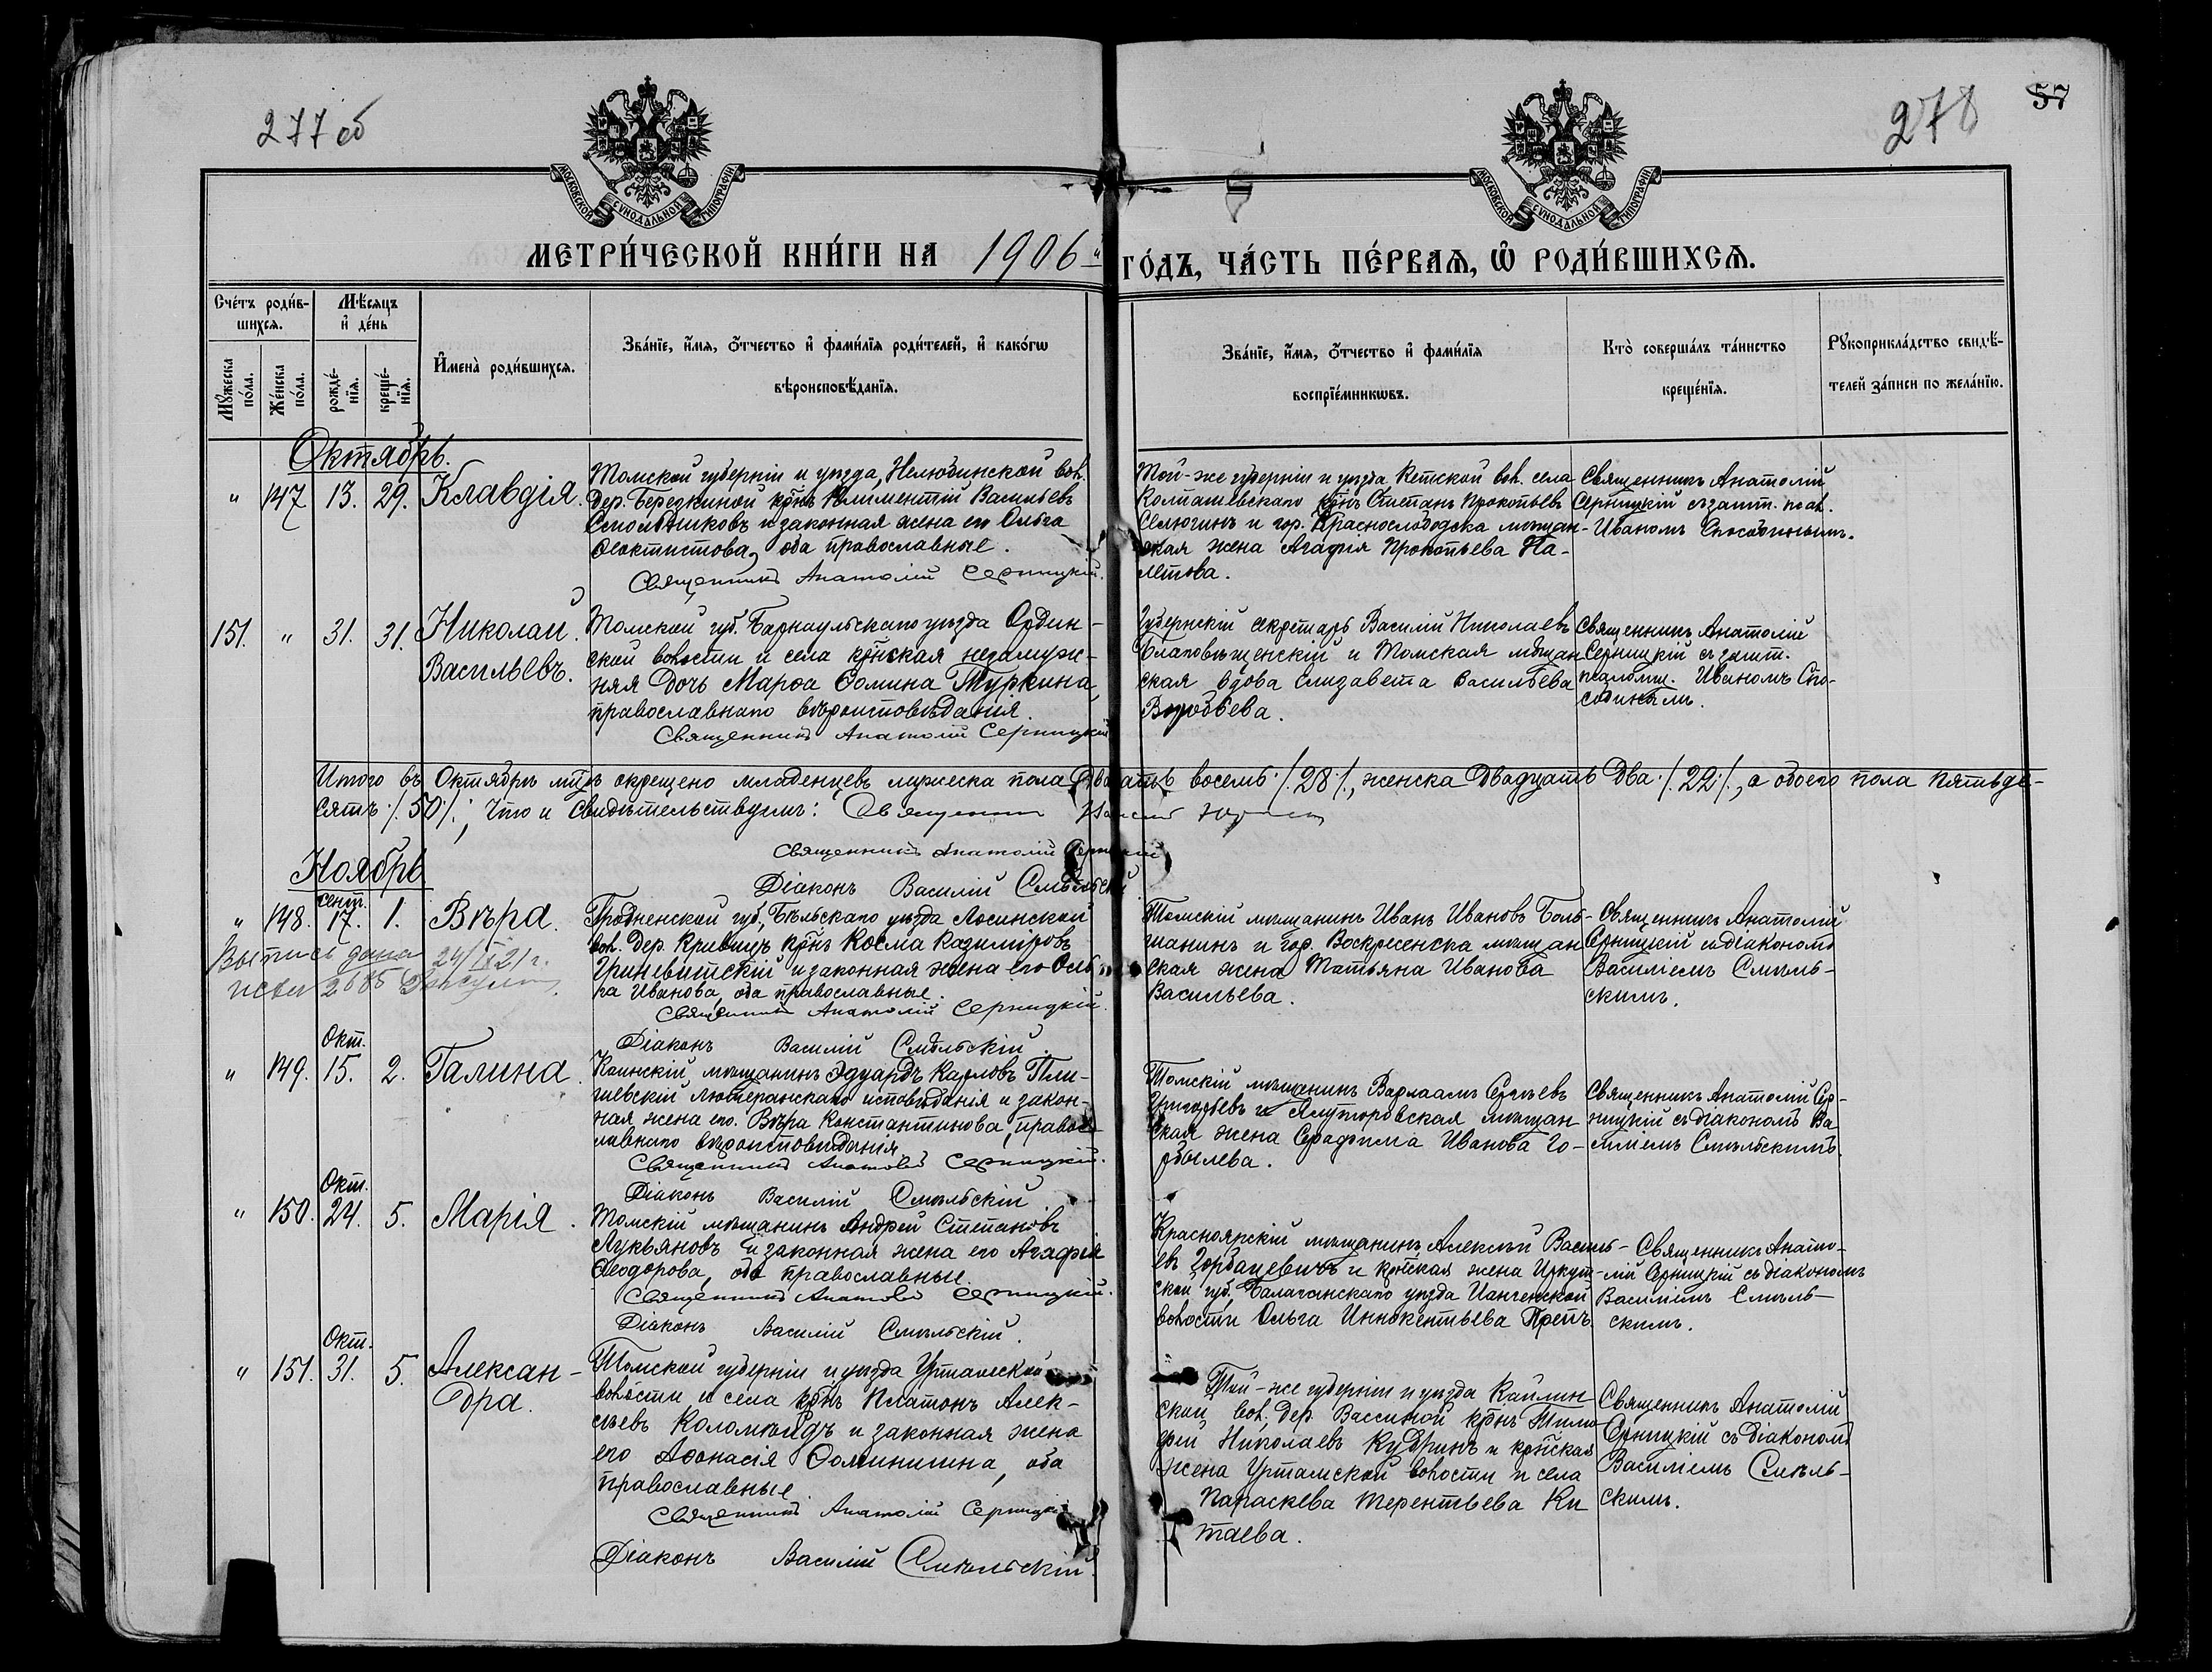 277 об
278
57
МОСКОВСКОЙ СѴНОДАЛЬНОЙ ТИПОГРАФІИ
МОСКОВСКОЙ СѴНОДАЛЬНОЙ ТИПОГРАФІИ
МЕТРИ́ЧЕСКОЙ КНИ́ГИ НА 1906 й ГО́ДЪ, ЧА́СТЬ ПЕ́РВАѦ, Ѡ РОДИ́ВШИХСѦ.
Сче́тъ роди́в-
шихсѧ.
Мѣ́сяцъ
и҆ де́нь
Мꙋ́жеска по́ла.
Же́нска по́ла.
рожде́-
нїѧ.
креще́-
нїѧ.
И҆мена̀ роди́вшихсѧ.
Зва́нїе, и҆́мѧ, ѻ҆́тчество и҆ фами́лїѧ роди́телей, и҆ како́гѡ
вѣроисповѣ́данїѧ.
Зва́нїе, и҆́мѧ, ѻ҆́тчество и҆ фами́лїѧ
воспрїе́мникѡвъ.
Кто̀ соверша́лъ та́инство
креще́нїѧ.
Рꙋкоприкла́дство свидѣ́-
телей за́писи по жела́нїю.
Октябрь.
" 147 13. 29. Клавдія.
Томской губерніи и уѣзда, Нелюбинской вол.
Дер. Березкиной крнъ Климентій Васильевъ
и законная жена его Ольга
Ѳеоктистова, оба православные.
Священникъ Анатолій Серницкій.
Той-же губерніи и уѣзда Кетской вол. села
Колпашевскаго крнъ Степанъ Прокопьевъ
Селюгинъ и гор. Краснослободска мѣщан-
ская жена Агафія Прокопьева Па-
летова.
Священникъ Анатолій
Серницкій
Иваномъ Способинымъ.
151. " 31. 31. Николай
Васильевъ.
Томской губ. Барнаульскаго уѣзда Ордин-
ской волости и села крнская незамуж-
няя дочь Марѳа Ѳомина Туркина,
православнаго вѣроисповѣданія.
Священникъ Анатолій Серницкій
Губернскій секретарь Василій Николаевъ
Благовѣщенскій и Томская мѣщан-
ская вдова Елизавета Васильева
Воробьева.
Священникъ Анатолій
Серницкій
псаломщ. Иваномъ Спо-
собинымъ.
Итого въ Октябрѣ мцѣ окрещено младенцевъ мужеска пола двадцать восемь /28/, женска двадцать два /22/, а обоего пола пятьде-
сятъ /50/; что и свидѣтельствуемъ: Священникъ
Священникъ Анатолій Серницкій
Діаконъ Василій Смѣльскій
Ноябрь
Сент.
" 148. 17. 1. Вѣра.
Гродненской губ., Бѣльскаго уѣзда Лосинской
вол. дер. Кривецъ крнъ Косма Казиміровъ
Гриневитскій и законная жена его
Иванова, оба православные.
Священникъ Анатолій Серницкій.
Діаконъ Василій Смѣльскій.
Томскій мѣщанинъ Иванъ Ивановъ Боль-
шанинъ и гор. Воскресенска мѣщан-
ская жена Татьяна Иванова
Васильева.
Священникъ Анатолій
Серницкій и діакономъ
Василіемъ Смѣль-
скимъ.
Выпись дана 24/IX 21 г.
Окт.
" 149. 15. 2. Галина.
Каинскій мѣщанинъ Эдуардъ Карловъ Пли-
шевскій лютеранскаго исповѣданія и закон-
ная жена его Вѣра Константинова, правос-
лавнаго вѣроисповѣданія
Священникъ Анатолій Серницкій.
Діаконъ Василій Смѣльскій
Томскій мѣщанинъ Варлаамъ Сергѣевъ
Григорьевъ и Ялуторовская мѣщан-
ская жена Серафима Иванова Го-
рбылева.
Священникъ Анатолій Сер-
ницкій съ діакономъ Ва-
силіемъ Смѣльскимъ.
Окт.
" 150. 24. 5. Марія.
Томскій мѣщанинъ Андрей Степановъ
Лукьяновъ и законная жена его Агафія
Ѳеодорова, оба православные.
Священникъ Анатолій Серницкій.
Діаконъ Василій Смѣльскій.
Красноярскій мѣщанинъ Алексѣй Василь-
евъ Горбацевичъ и крнская жена Иркут-
ской губ. Балаганскаго уѣзда
волости Ольга Иннокентьева
Священникъ Анато-
лій Серницкій съ діакономъ
Василіемъ Смѣль-
скимъ.
Окт.
" 151. 31. 5. Алексан-
дра.
Томской губерніи и уѣзда Уртамской
волости и села крнъ Платонъ Алек-
сѣевъ и законная жена
его Аѳонасія Ѳоминишна, оба
православные
Священникъ Анатолій Серницкій
Діаконъ Василій Смѣльскій.
Той-же губерніи и уѣзда Кайлин-
ской вол. дер. Вассиной крнъ Тимо-
фей Николаевъ Кубринъ и крнская
жена Уртамской волости и села
Параскева Терентьева Ки-
таева.
Священникъ Анатолій
Серницкій съ діакономъ
Василіемъ Смѣль-
скимъ.